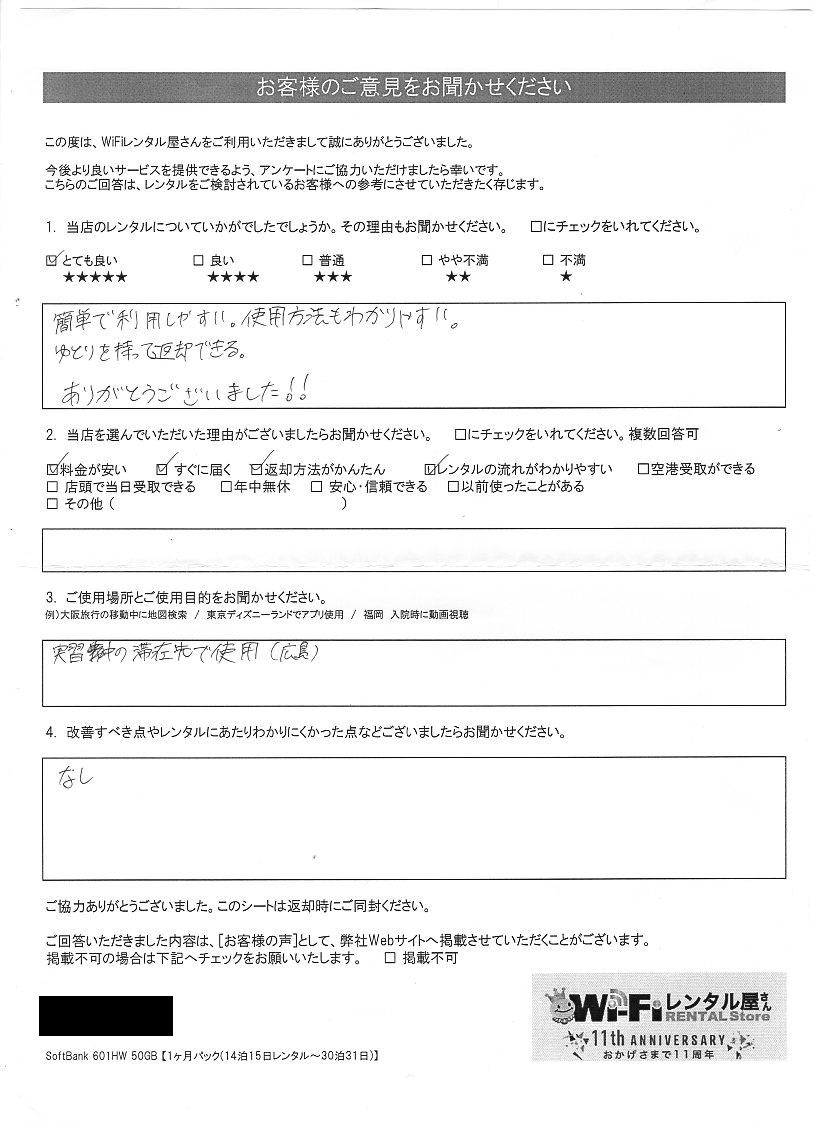 お客様のご意見をお聞かせください
この度は、WiFiレンタル屋さんをご利用いただきまして誠にありがとうございました。
今後より良いサービスを提供できるよう、アンケートにご協力いただけましたら幸いです。
こちらのご回答は、レンタルをご検討されているお客様への参考にさせていただきたく存じます。
1. 当店のレンタルについていかがでしたでしょうか。その理由もお聞かせください。 □にチェックをいれてください。
☑とても良い □ 良い □ 普通 □ やや不満 □ 不満
★★★★★ ★★★★ ★★★ ★★ ★
簡単で利用しやすい。使用方法もわかりやすい。
ゆとりを持って返却できる。
ありがとうございました!!
2. 当店を選んでいただいた理由がございましたらお聞かせください。 □にチェックをいれてください。複数回答可
☑料金が安い ☑ すぐに届く ☑返却方法がかんたん ☑レンタルの流れがわかりやすい □空港受取ができる
□ 店頭で当日受取できる □年中無休 □ 安心・信頼できる □以前使ったことがある
□ その他 ( )
3. ご使用場所とご使用目的をお聞かせください。
例)大阪旅行の移動中に地図検索 / 東京ディズニーランドでアプリ使用 / 福岡 入院時に動画視聴
実習中の滞在先で使用(広島)
4. 改善すべき点やレンタルにあたりわかりにくかった点などございましたらお聞かせください。
なし
ご協力ありがとうございました。このシートは返却時にご同封ください。
ご回答いただきました内容は、[お客様の声]として、弊社Webサイトへ掲載させていただくことがございます。
掲載不可の場合は下記へチェックをお願いいたします。 □ 掲載不可
Wi-Fiレンタル屋さん
RENTAL Store
11th ANNIVERSARY
おかげさまで11周年
SoftBank 601HW 50GB【1ヶ月パック(14泊15日レンタル～30泊31日)】